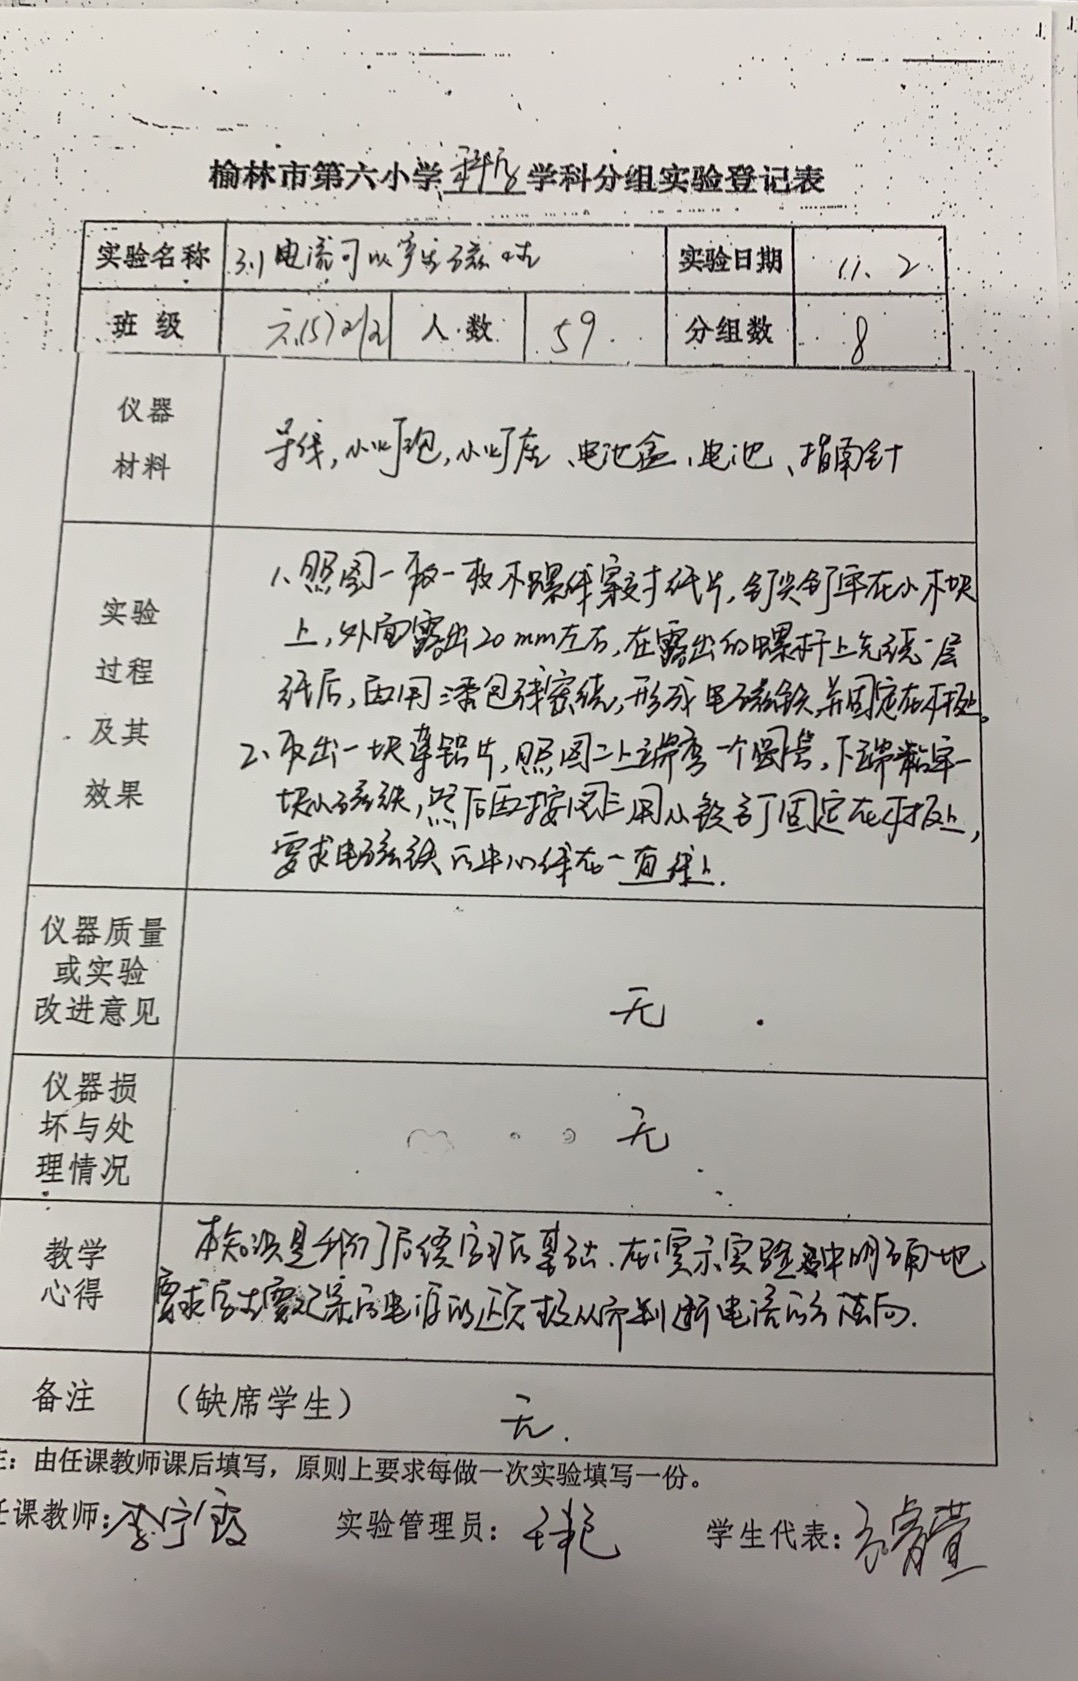 榆林市第六小学科学学科分组实验登记表
实验名称 3.1电流可以产生磁 实验日期 11.2
班 级 六(5) 人 数 59 分组数 8
仪器
材料
导线,小灯泡,小灯座、电池盒、电池、指南针
实验
过程
及其
效果
1、照图一取一枚木螺 穿 纸片, 牢在小木块
上,外面露出20mm左右,在露出的螺杆上先绕一层
纸后,再用漆包线密绕,形成电磁铁,并固定在木板上。
2、取出一块薄铝片,照图二上端弯一个圆 ,下端粘牢一
块小磁铁,然后再按图三用小铁钉固定在木板上,
要求电磁铁的中心线在一直线上.
仪器质量
或实验
改进意见
无
仪器损
坏与处
理情况
无
教学
心得
本知识是我们后续学习的基础.在演示实验中明确地
要求学生要 电源的 极从而判断电流的方向.
备注
(缺席学生) 无.
注:由任课教师课后填写,原则上要求每做一次实验填写一份。
任课教师:李宁霞 实验管理员: 艳 学生代表: 睿萱